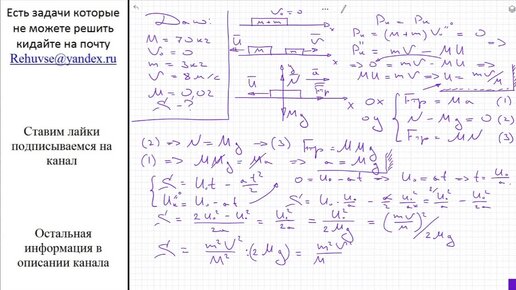 Есть задачи которые
не можете решить
кидайте на почту
Rehuvse@yandex.ru
Ставим лайки
подписываемся на
канал
Остальная
информация в
описании канала
Дано:
M = 70 кг
V₀ = 0
m = 3 кг
V = 8 м/с
μ = 0,02
S - ?
V₀ = 0
m+M
x
M
m
U
V
x
U
N
a
Fтр
x
Mg
Pн = Pк
Pн = (m+M)V₀ = 0
Pк = mV - MU
=> 0 = mV - MU =>
MU = mV => U = mV/M
ox
oy
Fтр = Ma (1)
N - Mg = 0 (2)
Fтр = μN (3)
(2) => N = Mg -> (3) Fтр = μMg
(1) => μMg = Ma => a = μg
S = U₀t - at²/2
U = U₀ - at
0 = U₀ - at => U₀ = at => t = U₀/a
S = U₀·U₀/a - a/2 U₀²/a² = U₀²/a - U₀²/2a
S = 2U₀² - U₀²/2a = U₀²/2a = U₀²/2μg = (mV/M)²/2μg
S = m²V²/M² · (2μg) = m²V²/M